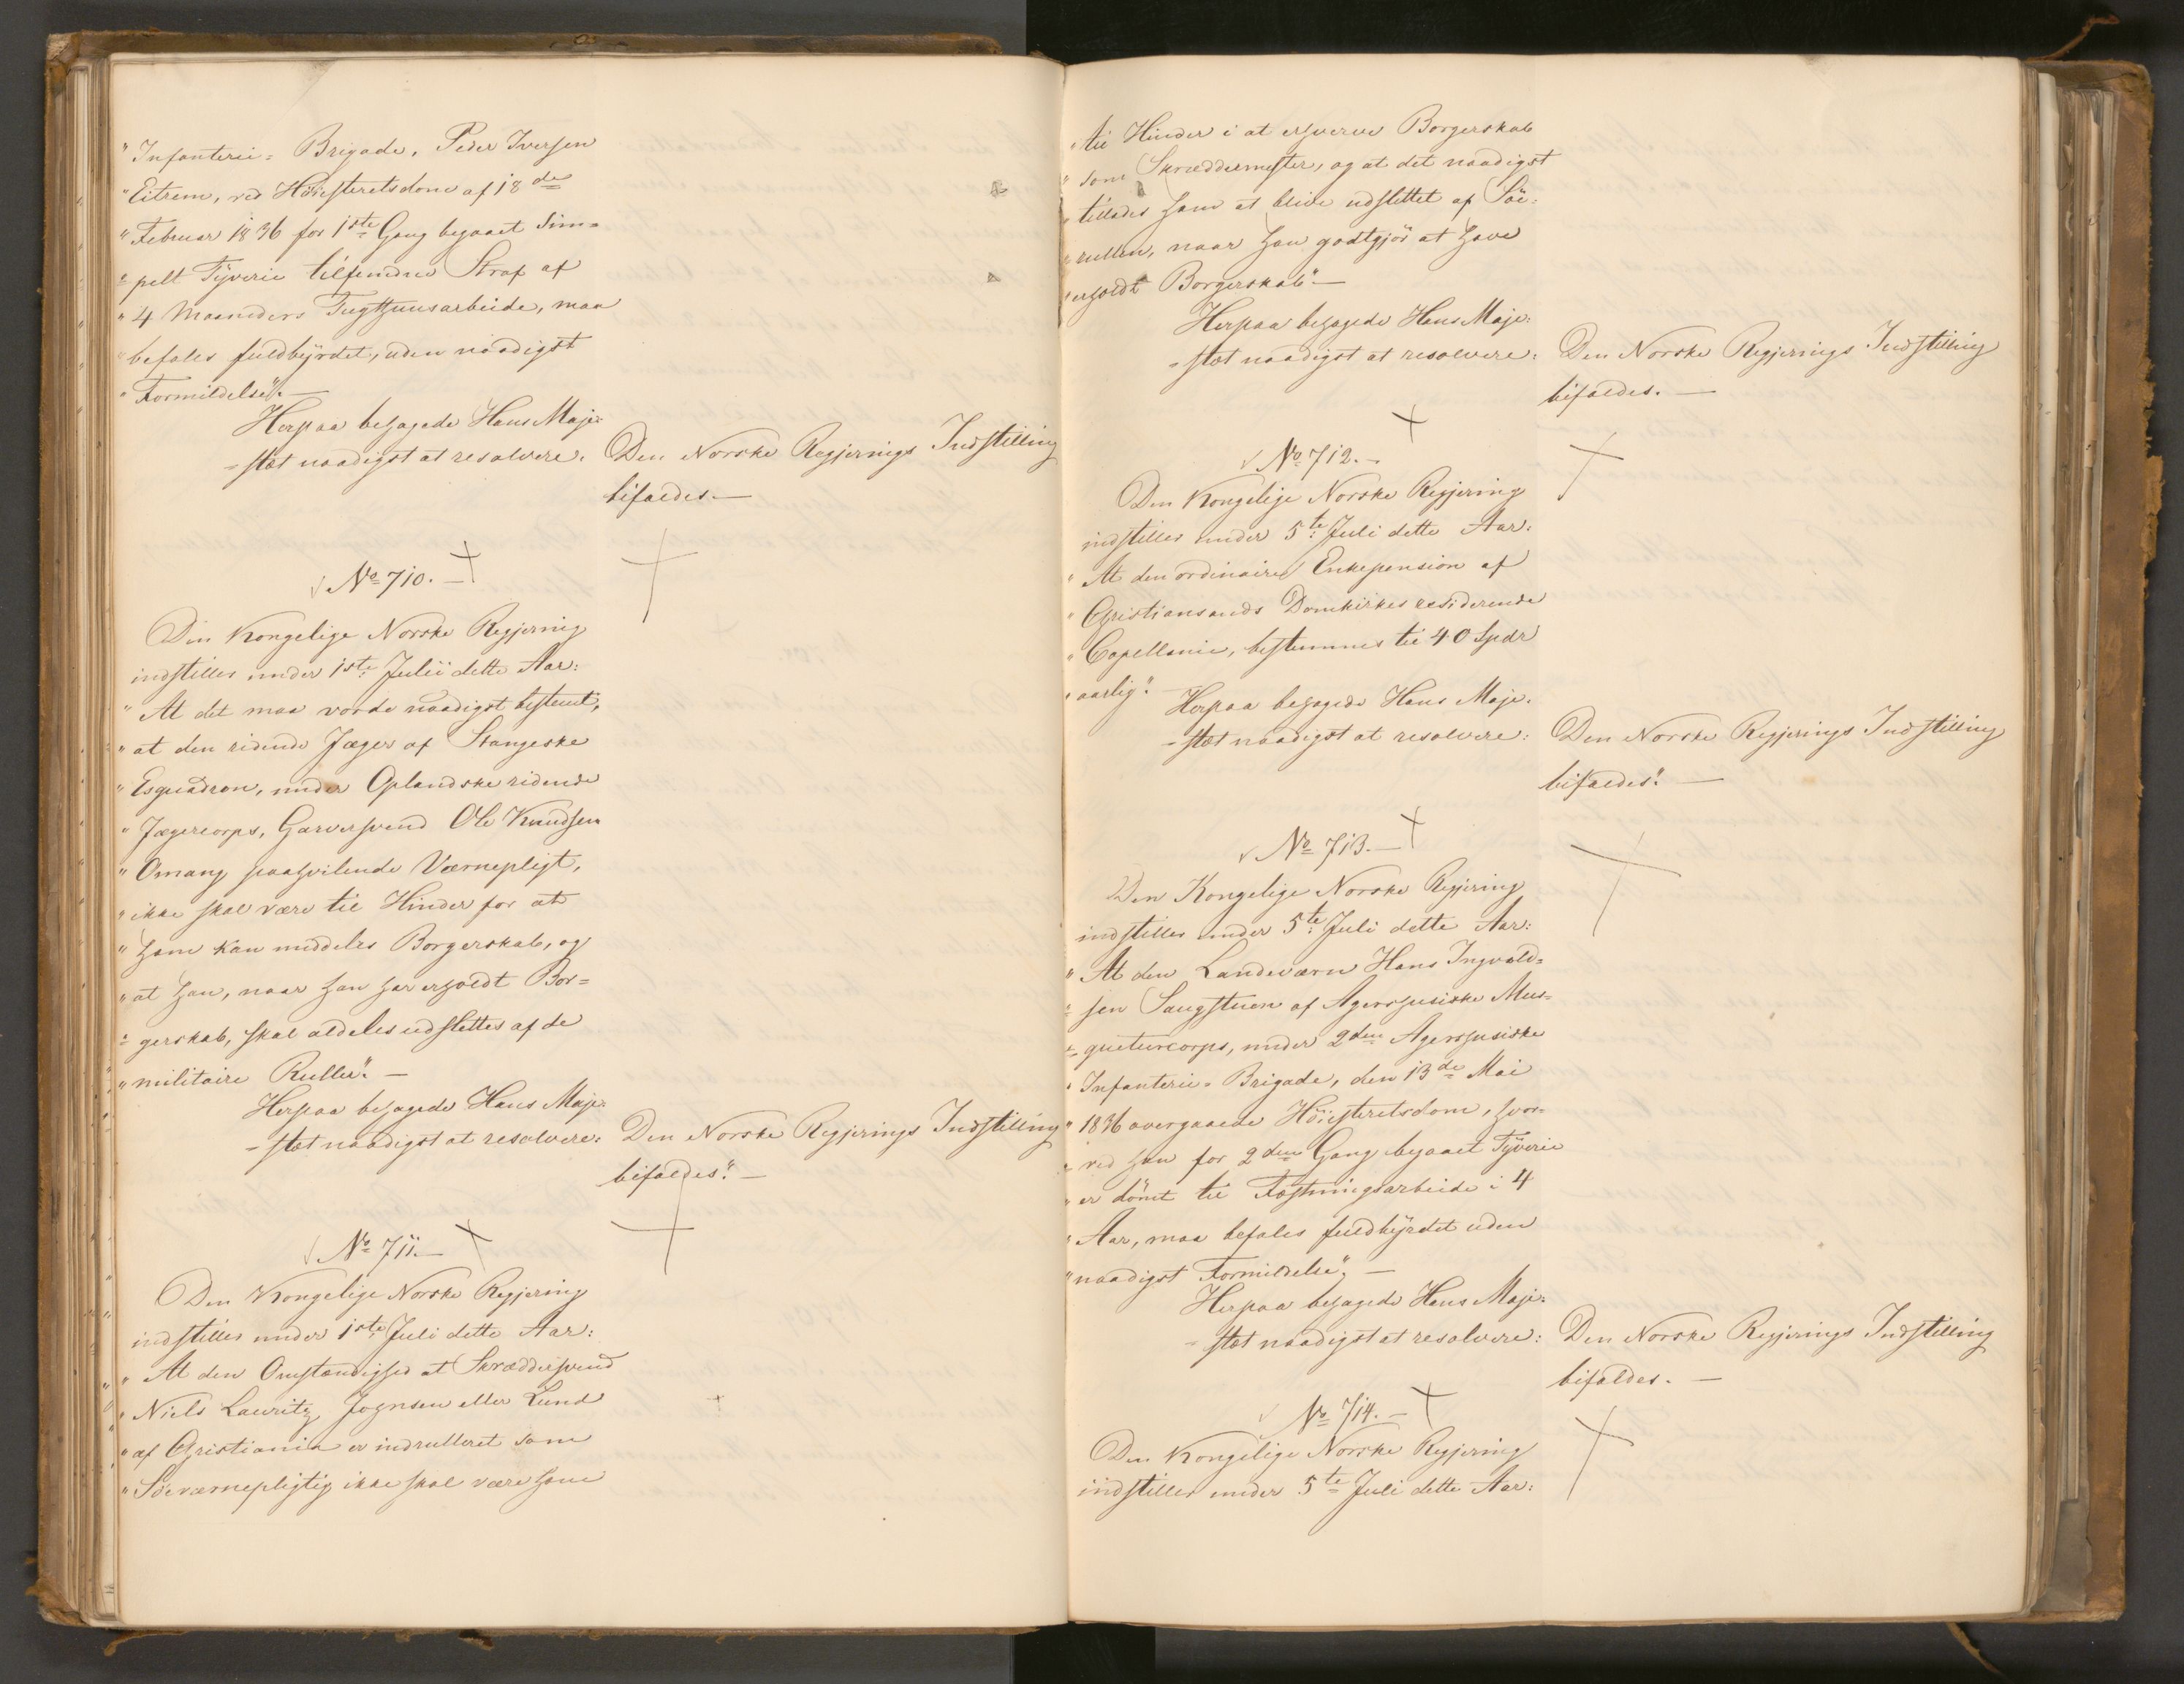 "Infanterie- Brigade, Peder Iversen
"Eitrem, ved Höiesteretsdom af 18de
"Februar 1836 for 1ste Gang begaaet Sim-
"pelt Tÿverie tilfundne Straf af
"4 Maaneders Tugthuusarbeide, maa
"befales fuldbÿrdet, uden naadigst
"Formildelse".—
Herpaa behagede Hans Maje-
-stæt naadigst at resolvere: Den Norske Regjerings Indstilling
bifaldes.—
No 710.—
Den Kongelige Norske Regjering
indstiller under 1ste Julii dette Aar:
"At det maa vorde naadigst bestemt,
"at den ridende Jæger af Stangeske
"Esquadron, under Oplandske ridende
"Jægercorps, Garversvend Ole Knudsen
"Omang paahvilende Værnepligt,
"ikke skal være til Hinder for at
"ham kan meddeles Borgerskab, og
"at han, naar han har erholdt Bor=
"gerskab, skal aldeles udslettes af de
"militaire Ruller".—
Herpaa behagede Hans Maje-
-stæt naadigst at resolvere: Den Norske Regjerings Indstilling
bifaldes".—
No 711.—
Den Kongelige Norske Regjering
indstiller under 1ste Juli dette Aar:
"At den Omstændighed at Skræddersvend
"Niels Lauritz Johnsen eller Lund
"af Christiania er indrulleret som
"Söeværnepligtig ikke skal være ham
"til Hinder i at erhverve Borgerskab
"som Skræddermester, og at det naadigst
"tillades ham at blive udslettet af Söe-
"rullen, naar han godtgjör at have
"erholdt Borgerskab"—
Herpaa behagede Hans Maje-
-stæt naadigst at resolvere: Den Norske Regjerings Indstilling
bifaldes.—
No 712.—
Den Kongelige Norske Regjering
indstiller under 5te Juli dette Aar:
"At den ordinaire Enkepension af
"Christiansands Domkirkes residerende
"Capellanie, bestemmes til 40 Spdr
"aarlig".
Herpaa behagede Hans Maje-
-stæt naadigst at resolvere: Den Norske Regjerings Indstilling
bifaldes".—
No 713.—
Den Kongelige Norske Regjering
indstiller under 5te Juli dette Aar:
"At den Landeværn Hans Ingvald-
"sen Saugstuen af Agershusiske Mus-
"queteercorps, under 2den Agershusiske
"Infanterie- Brigade, den 13de Mai
"1836 overgaaede Höiesteretsdom, hvor-
"ved han for 2den Gang begaaet Tÿverie
"er dömt til Fæstningsarbeide i 4
"Aar, maa befales fuldbÿrdet uden
"naadigst Formildelse".—
Herpaa behagede Hans Maje-
-stæt naadigst at resolvere: Den Norske Regjerings Indstilling
bifaldes.—
No 714.—
Den Kongelige Norske Regjering
indstiller under 5te Juli dette Aar: